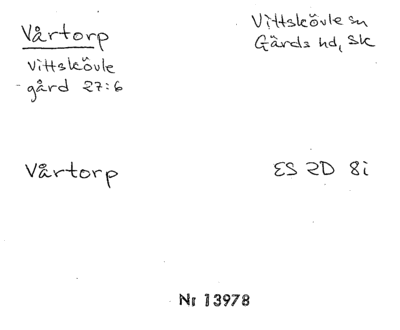 Vårtorp
Vittskövle sn
Gärds hd, Sk
Vittskövle
gård 27:6
Vårtorp
ES 2D 8i
Nr 13978